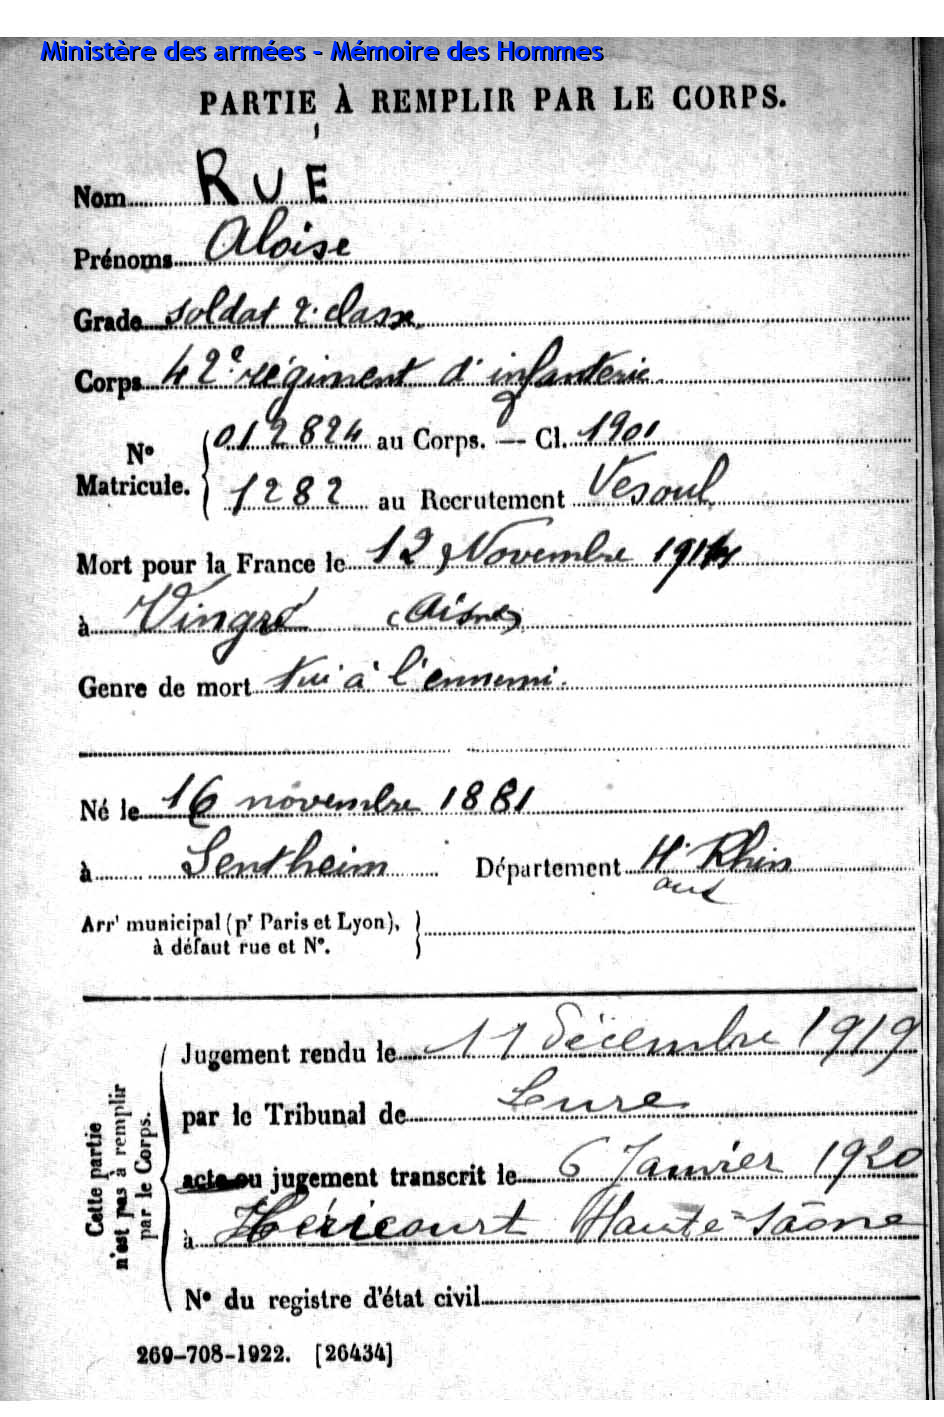 Ministère des armées - Mémoire des Hommes
PARTIE À REMPLIR PAR LE CORPS.
Nom RUE
Prénoms Aloise
Grade soldat 2e classe
Corps 42e régiment d'infanterie
N° Matricule. { 012824 au Corps. — Cl. 1901
1282 au Recrutement Vesoul
Mort pour la France le 12 Novembre 1914
à Vingré (Aisne)
Genre de mort Tué à l'ennemi.
Né le 16 novembre 1881
à Sentheim Département Ht Rhin
Arrt municipal (pr Paris et Lyon), }
à défaut rue et N°.
Cette partie n'est pas à remplir par le Corps.
Jugement rendu le 11 Décembre 1919
par le Tribunal de Lure
acte ou jugement transcrit le 6 Janvier 1920
à Héricourt Haute-Saône
N° du registre d'état civil
269-708-1922. [26434]